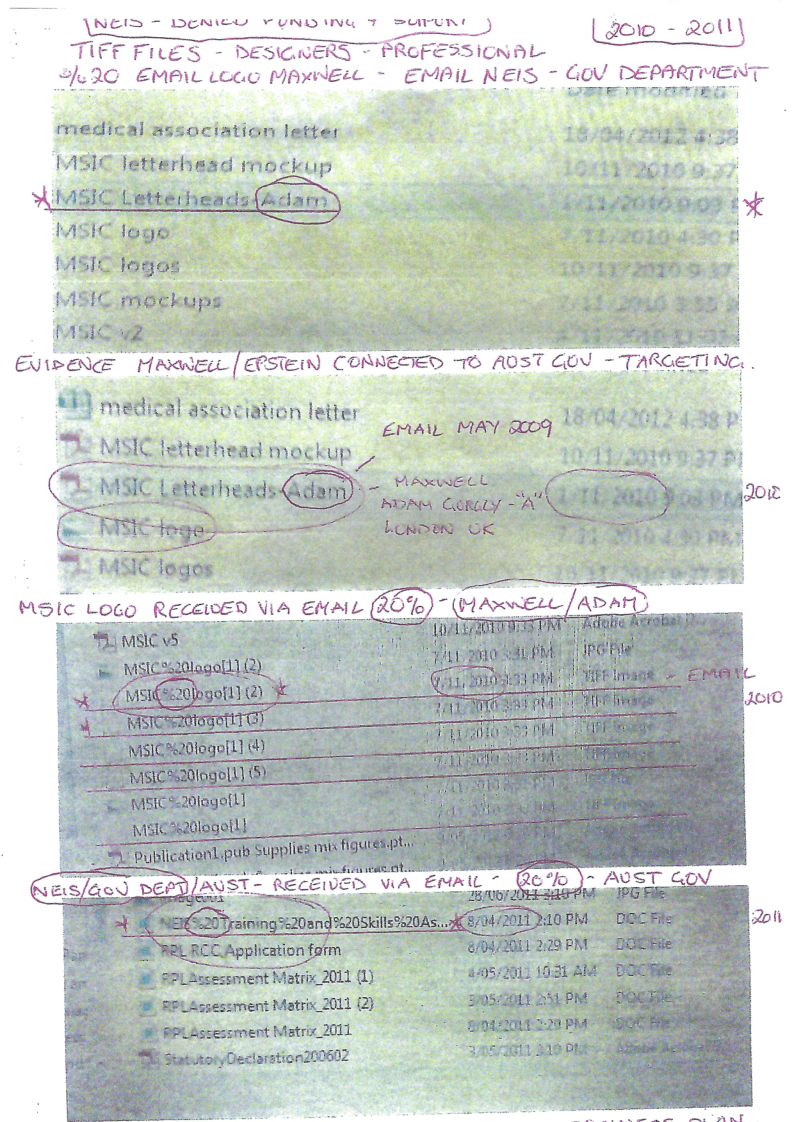 (NEIS - DENIED FUNDING + SUPORT)
(2010 - 2011)
TIFF FILES - DESIGNERS - PROFESSIONAL
%20 EMAIL LOGO MAXWELL - EMAIL NEIS - GOV DEPARTMENT
Date modified
medical association letter 18/04/2012 4:38
MSIC letterhead mockup 10/11/2010 9:37
* MSIC Letterheads-Adam 1/11/2010 9:03 P *
MSIC logo 7/11/2010 4:30 P
MSIC logos 10/11/2010 9:37
MSIC mockups 7/11/2010 3:35 P
MSIC v2
EVIDENCE MAXWELL/EPSTEIN CONNECTED TO AUST GOV - TARGETING.
medical association letter 18/04/2012 4:38 P
EMAIL MAY 2009
MSIC letterhead mockup 10/11/2010 9:37 PM
MSIC Letterheads-Adam - MAXWELL 1/11/2010 9:03 PM 2010
ADAM - "A"
MSIC logo LONDON UK 7/11/2010 4:30 PM
MSIC logos 10/11/2010 9:37 PM
MSIC LOGO RECEIVED VIA EMAIL (20%) - (MAXWELL/ADAM)
MSIC v5 10/11/2010 9:33 PM Adobe Acrobat
MSIC%20logo[1] (2) 7/11/2010 3:31 PM JPG File
* MSIC%20logo[1] (2) * 7/11/2010 3:33 PM TIFF Image - EMAIL
2010
* MSIC%20logo[1] (3) 7/11/2010 3:33 PM TIFF Image
MSIC%20logo[1] (4) 7/11/2010 3:33 PM TIFF Image
MSIC%20logo[1] (5)
MSIC%20logo[1]
MSIC%20logo[1]
Publication1.pub Supplies mix figures.pt...
NEIS/GOV DEPT/AUST - RECEIVED VIA EMAIL - (20%) - AUST GOV
28/06/2011 3:10 PM JPG File
* NEIS%20Training%20and%20Skills%20As... * 8/04/2011 2:10 PM DOC File 2011
RPL RCC Application form 8/04/2011 2:29 PM DOC File
RPLAssessment Matrix_2011 (1) 4/05/2011 10:31 AM DOC File
RPLAssessment Matrix_2011 (2) 3/05/2011 2:51 PM DOC File
RPLAssessment Matrix_2011 8/04/2011 2:29 PM DOC File
StatutoryDeclaration200602 3/05/2011 3:10 PM Adobe Acrobat